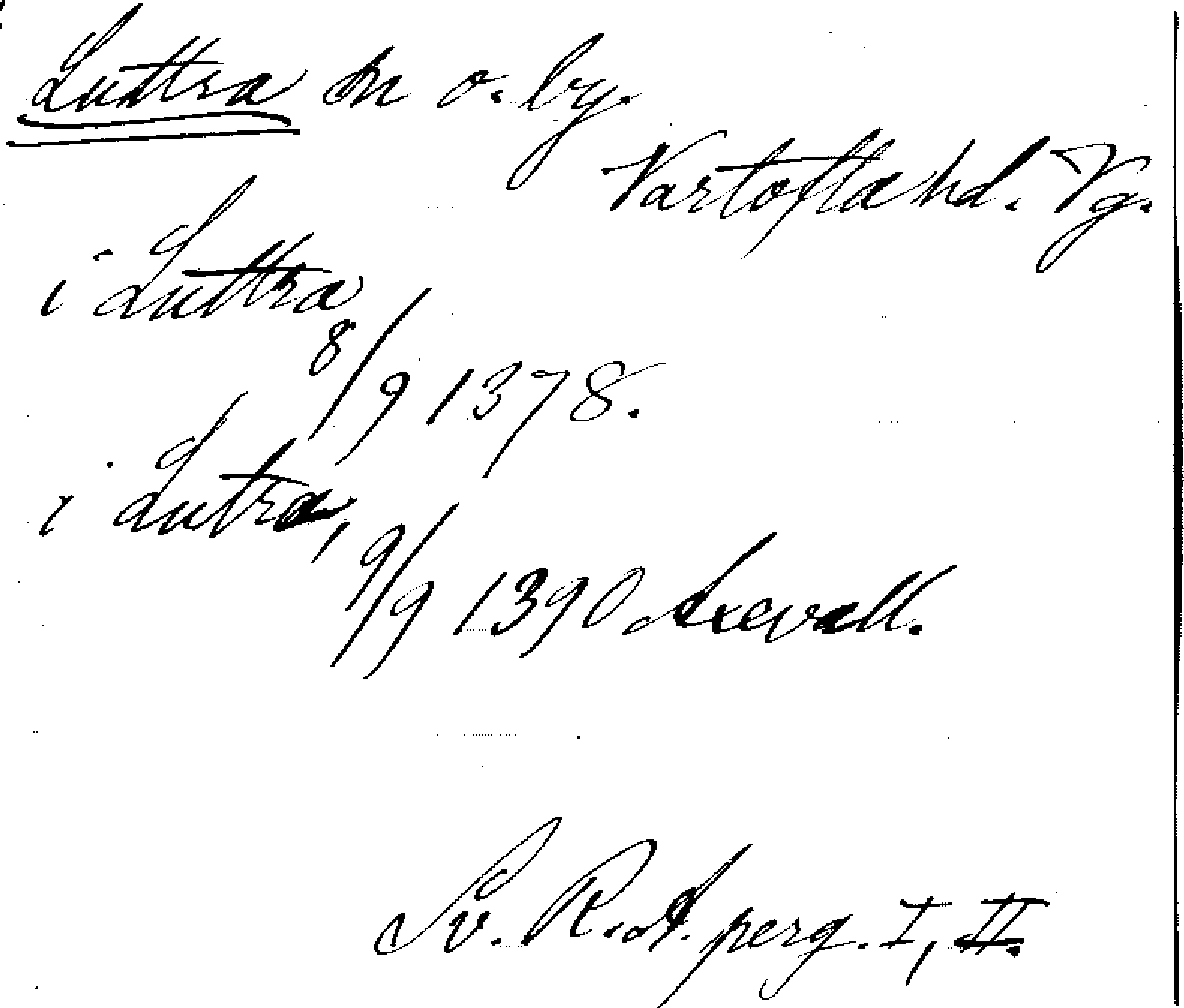 Luttra sn o. by.
Vartofta hd. Vg.
i Luttra
8/9 1378.
i Lutra,
9/9 1390 Axevall.
Sv. R.A. perg. I, II.